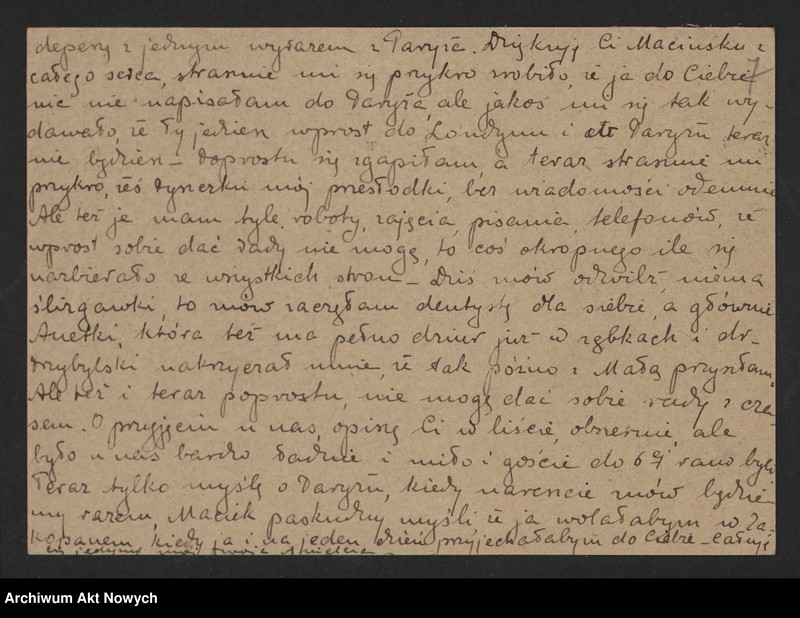 depeszę z jednym wyrazem z Paryża. Dziękuję Ci Maciuśku z
całego serca, strasznie mi się przykro zrobiło, że ja do Ciebie 7
nic nie napisałam do Paryża, ale jakoś mi się tak wy-
dawało, że Ty jedzien wprost do Londynu i Paryżu teraz
nie będzien – Poprostu się zgapiłam, a teraz strasznie mi
przykro, żeś synerku mój przesłodki, bez wiadomości odemnie
Ale też ja mam tyle roboty, zajęcia, pisania, telefonów, że
wprost sobie dać rady nie mogę, to coś okropnego ile się
nazbierało ze wszystkich stron – Dziś znów odwilż, niema
ślizgawki, to znów zaczęłam dentystę dla siebie, a głównie
Anetki, która też ma pełno dziur już w ząbkach i dr-
Przybylski nakrzyczał na mnie, że tak późno z Małą przyszłam,
Ale też i teraz poprostu, nie mogę dać sobie rady z cza-
sem. O przyjęciu u nas, opiszę Ci w liście, obszernie, ale
było u nas bardzo ładnie i miło i goście do 6 ej rano byli
Teraz tylko myślę o Paryżu, kiedy nareszcie znów będzie-
my razem, Maciek paskudny myśli że ja wolałabym w Za-
kopanem, kiedy ja i na jeden dzień przyjechałabym do Ciebie – Całuję
Cię jedyny mój Twoja
Archiwum Akt Nowych